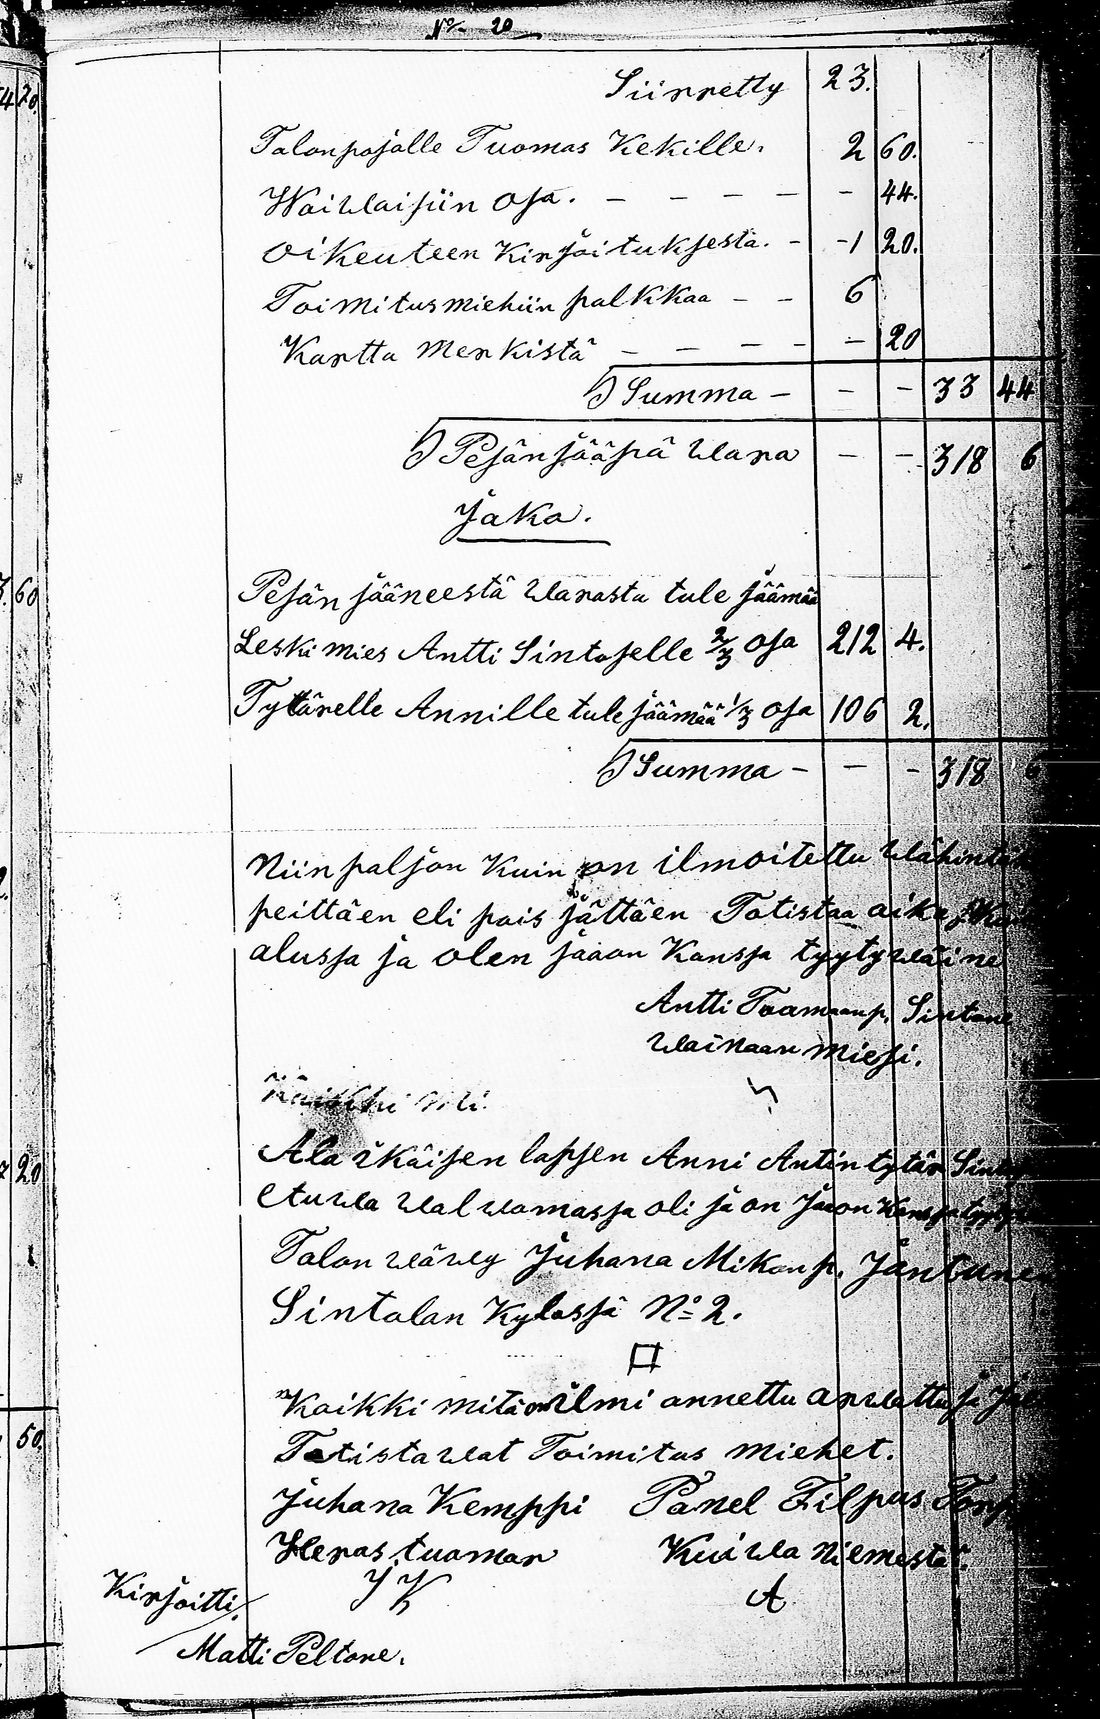 No 20
Siirretty 23.
Talonpojalle Tuomas Kekille. 2 60.
Waiwaisiin osa. - - - - - 44.
oikeuteen Kirjoituksesta. - -1 20.
Toimitusmiehiin palkkaa - - 6
Kartta merkistä - - - - - 20
Summa - - - 33 44
Pesän jääpä wara - - 318 6
Jako.
Pesän jääneestä warasta tule jäämää
Leski mies Antti Sintoselle 2/3 osa 212 4.
Tyttärelle Annille tule jäämää 1/3 osa 106 2.
Summa - - - 318 6
Niin paljon Kuin on ilmoitettu
peittäen eli pois jättäen Totistaa
alussa ja olen jaaon Kanssa tyytywäine
Antti Toamaanp. Sintone
wainaan miesi.
Ala ikäisen lapsen Anni Antin tytär
etuwa walwomassa oli ja on Jaon
Talon wäwy Juhana Mikonp. Jantune
Sintolan Kylässä No 2.
Kaikki mitä on ilmi annettu arwattu ja
Totistawat Toimitus miehet.
Juhana Kemppi Panel Filpus
Heras tuoman Kuiwa niemestä.
J K A
Kirjoitti.
Matti Peltone.
4 20.
3. 60
20
50.